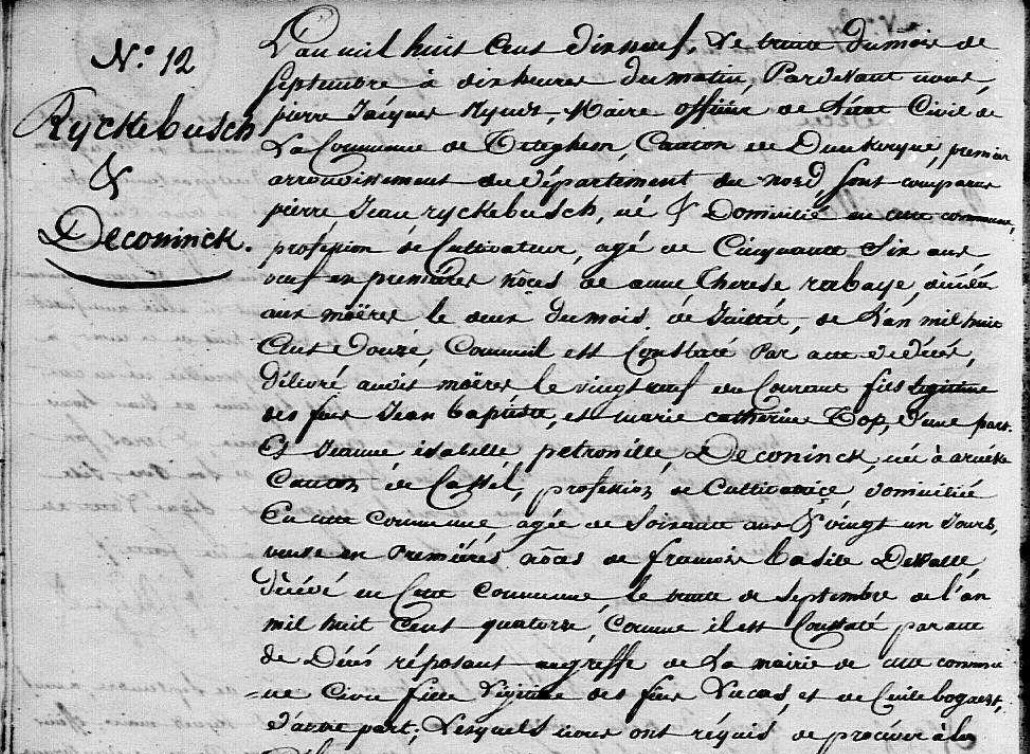 N.º 12
Ryckebusch
&
Deconinck.
L'an mil huit Cent dix neuf, Le trente du mois de
Septembre à dix heures du matin, Pardevant nous
pierre Jacques Ryndt, Maire officier de l'état Civil de
La Commune de Teteghem, Canton de Dunkerque, premier
arrondissement du Département du nord sont comparus
pierre Jean ryckebusch, né & Domicilié en cette commune,
profession de Cultivateur, agé de Cinquante Six ans
veuf en premières nôces de anne Therese rabaye, décédée
aux moëres le deux du mois de Juillet, de L'an mil huit
Cent douze, Comme il est Constaté Par acte de décès,
délivré audit moëres le vingt neuf du Courant fils legitime
des feus Jean baptiste, et marie catherine Top, d'une part.
Et Jeanne isabelle petronille, Deconinck, née à arneke
Canton de Cassel, profession de Cultivatrice domiciliée
En cette Commune, agée de Soixante ans & vingt un Jours,
veuve en Premières nôces de francois basile Dewalle
décédé en Cette Commune, le trente de Septembre de l'an
mil huit Cent quatorze, Comme il est Constaté par acte
de Décés réposant au greffe de La mairie de cette commu
ne Civile fille Légitime des feus Lucas, et de Cecile bogaert,
d'autre part; Lesquels nous ont réquis de procéder à la